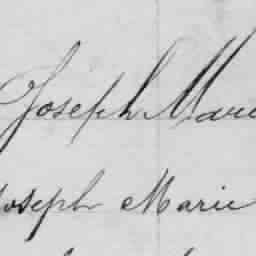 Joseph Marie
Joseph Marie